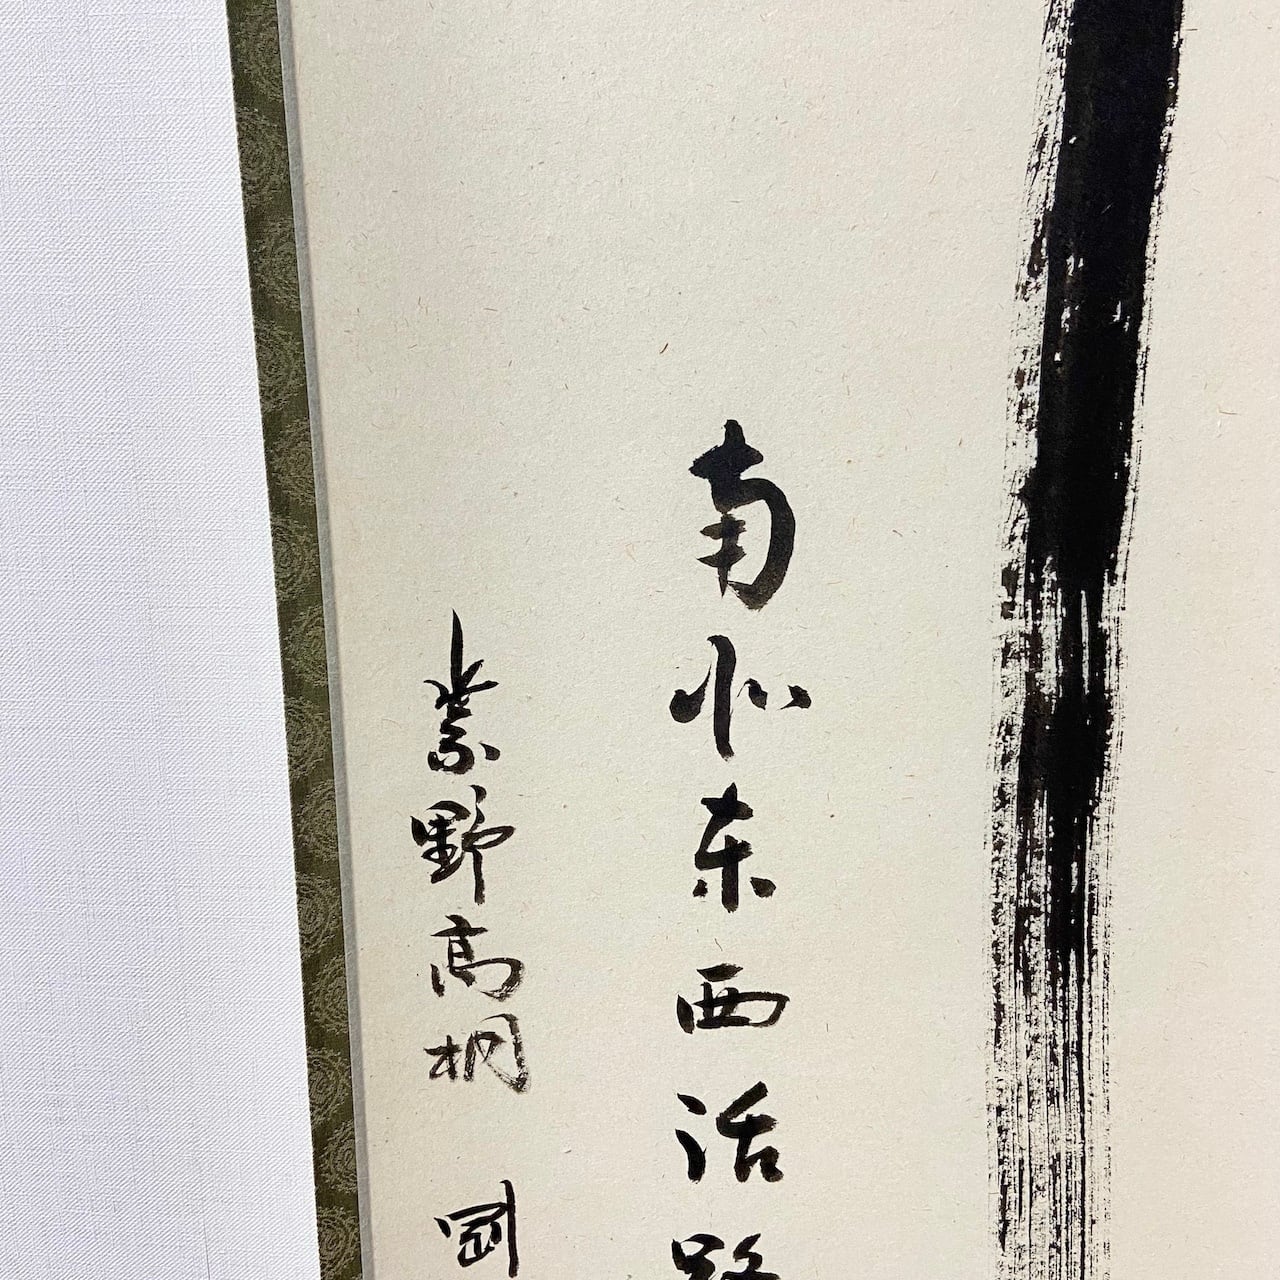 南北東西活路
紫野高桐 剛